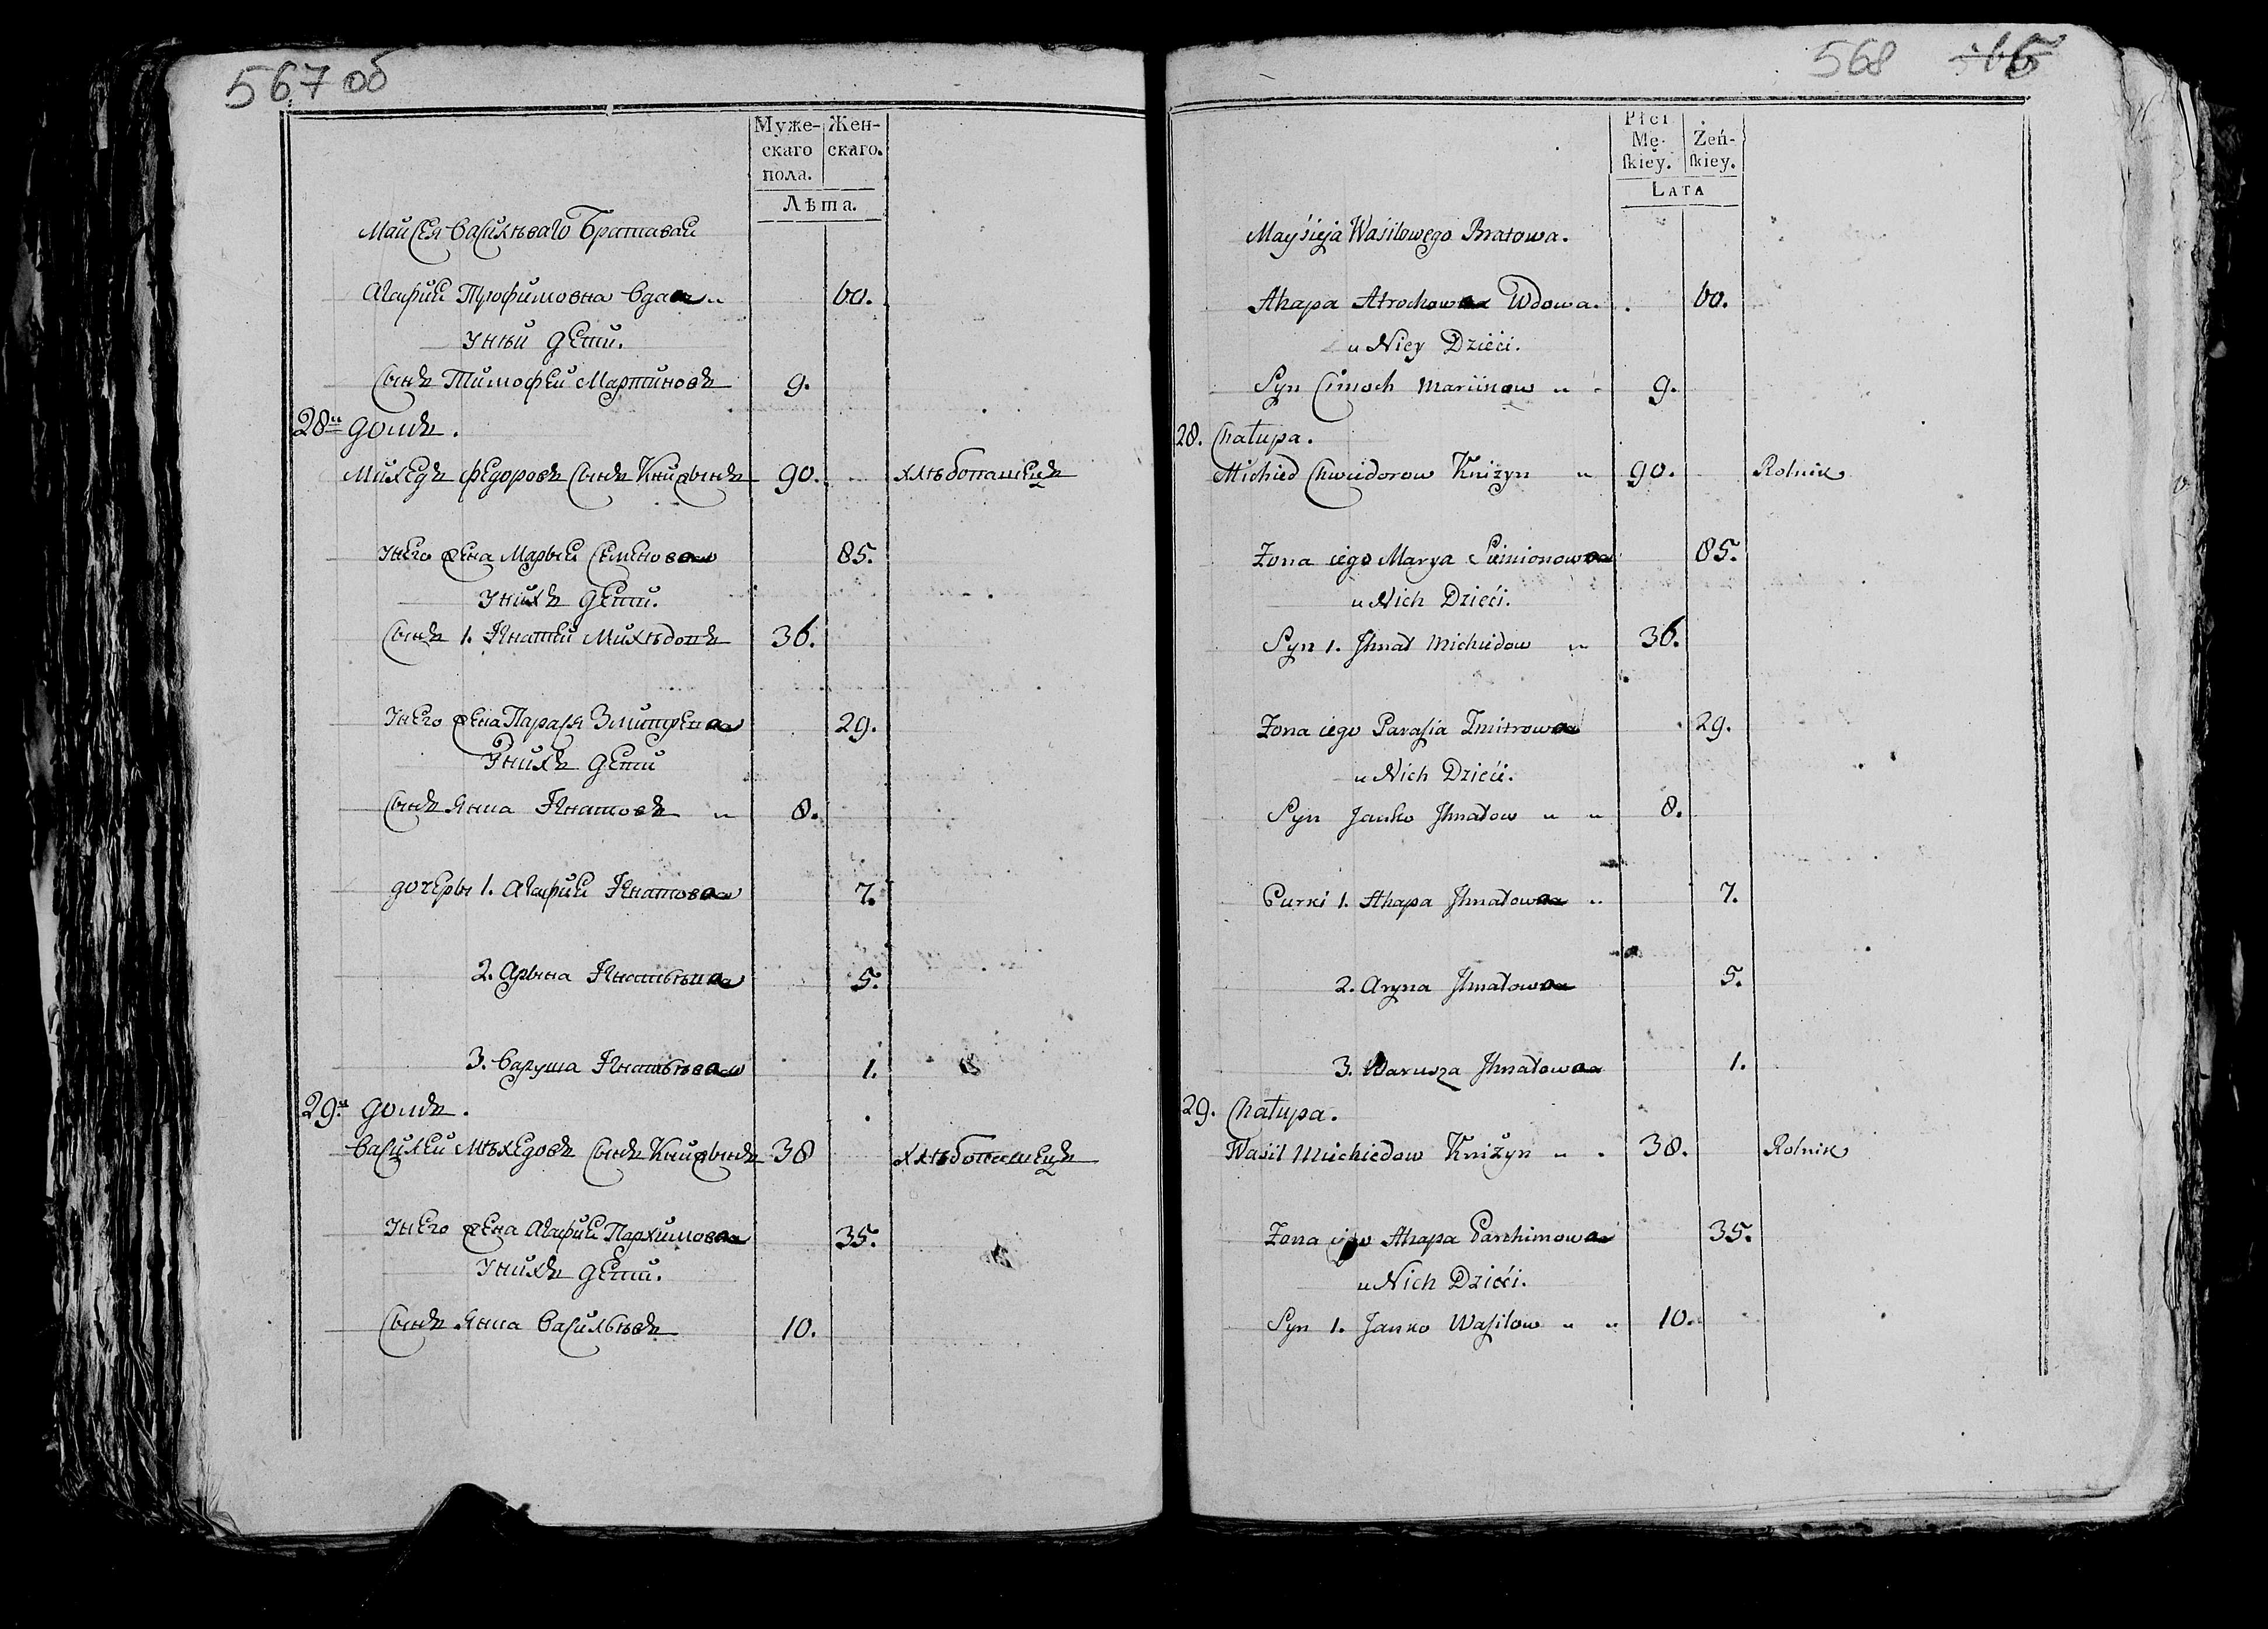 567 об
Муже- Жен-
скаго скаго.
пола.
Лѣта.
Майсея Василѣваго Братавая
Агафия Трофимовна вдава „ 60.
У нѣи дети.
Сынъ Тимофей Мартиновъ 9.
28й домъ.
Михедъ Федоровъ Сынъ Книжынъ 90. хлѣбопашецъ
У него жена Марыя Семенова 85.
У нихъ дети.
Сынъ 1. Игнатей Михѣдовъ 36.
У него жена Парася Змитрева 29.
У нихъ дети
Сынъ Янка Игнатовъ „ 8.
дочеры 1. Агафия Игнатова 7.
2. Арына Игнатѣва 5.
3. Варуша Игнатѣва 1.
29й домъ.
Василей Мѣхедовъ Сынъ Книжынъ 38 хлѣбопашецъ
У него жена Агафия Пархимова 35.
У нихъ дети.
Сынъ Янка Васильевъ 10.
568
Płci
Mę- Żeń-
ſkiey. ſkiey.
LATA
Mayśieja Wasilowego Bratowa.
Ahapa Atrochowa Wdowa. 60.
u Niey Dzieći.
Syn Cimoch Marcinow „ 9.
28. Chałupa.
Michied Chwiedorow Kniżyn „ 90. Rolnik
Żona iego Marya Siemionowa 85.
u Nich Dzieći.
Syn 1. Jhnat Michiedow „ 36.
Żona iego Parasia Zmitrowa 29.
u Nich Dzieći.
Syn Janko Jhnatow „ „ 8.
Curki 1. Ahapa Jhnatowa „ 7.
2. Aryna Jhnatowa 5.
3. Warusza Jhnatowa 1.
29. Chałupa.
Wasil Michiedow Kniżyn „ 38. Rolnik
Żona iego Ahapa Parchimowa 35.
u Nich Dzieći.
Syn 1. Janko Wasilow „ „ 10.